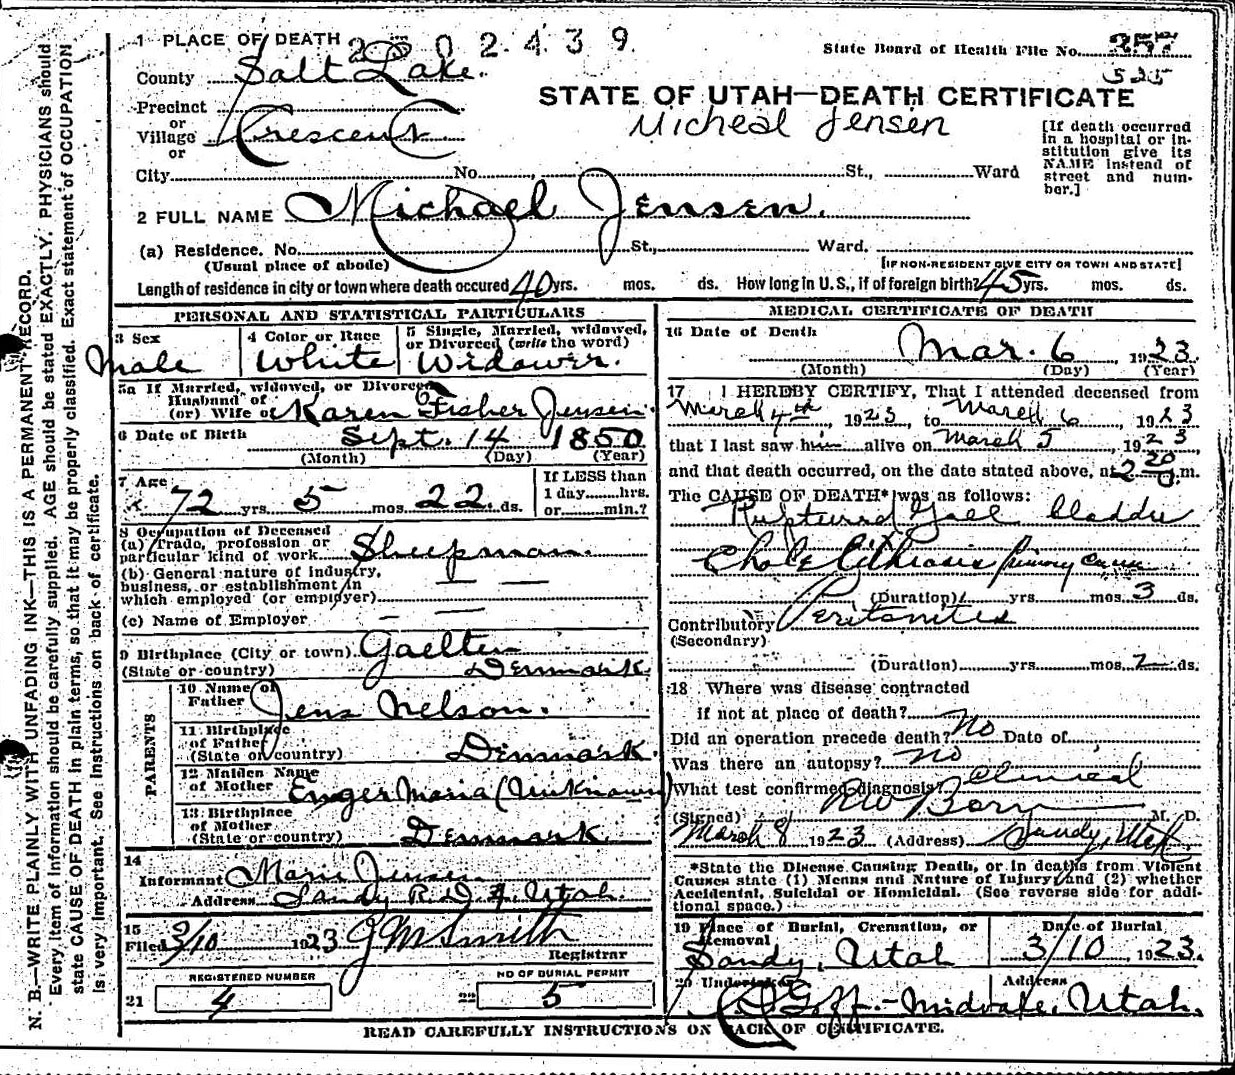 1 PLACE OF DEATH 2 3 0 2 4 3 9
State Board of Health File No. 257
325
County Salt Lake.
STATE OF UTAH—DEATH CERTIFICATE
Micheal Jensen
Precinct
or
Village Crescent
or
[If death occurred in a hospital or institution give its NAME instead of street and number.]
City No. , St., Ward
2 FULL NAME Michael Jensen.
(a) Residence. No. St., Ward.
(Usual place of abode) [IF NON-RESIDENT GIVE CITY OR TOWN AND STATE]
Length of residence in city or town where death occured 40 yrs. mos. ds. How long in U.S., if of foreign birth? 45 yrs. mos. ds.
PERSONAL AND STATISTICAL PARTICULARS
3 Sex
Male
4 Color or Race
White
5 Single, Married, widowed, or Divorced (write the word)
Widower.
5a If Married, widowed, or Divorced
Husband of
(or) Wife of Karen Fisher Jensen
6 Date of Birth Sept. 14 1850
(Month) (Day) (Year)
7 Age
72 yrs. 5 mos. 22 ds.
If LESS than
1 day hrs.
or min.?
8 Occupation of Deceased
(a) Trade, profession or
particular kind of work Sheepman.
(b) General nature of Industry,
business, or establishment in
which employed (or employer)
(c) Name of Employer
9 Birthplace (City or town)
(State or country) Denmark.
PARENTS
10 Name of
Father Jens Nelson.
11 Birthplace
of Father
(State or country) Denmark.
12 Maiden Name
of Mother Enger Maria (Unknown)
13 Birthplace
of Mother
(State or country) Denmark.
14
Informant Marie Jensen
Address Sandy R.D. Utah.
15
Filed 3/10 1923 J M Smith
Registrar
REGISTERED NUMBER
21 4
NO OF BURIAL PERMIT
22 5
MEDICAL CERTIFICATE OF DEATH
16 Date of Death
Mar. 6, 1923.
(Month) (Day) (Year)
17 I HEREBY CERTIFY, That I attended deceased from
March 4th, 1923 to March 6, 1923
that I last saw him alive on March 5, 1923,
and that death occurred, on the date stated above, at 2 20 m.
The CAUSE OF DEATH* was as follows:
Ruptured Gall bladder
Chole lithiasis primary cause
(Duration) yrs. mos. 3 ds.
Contributory Peritonites
(Secondary)
(Duration) yrs. mos. 2 ds.
18 Where was disease contracted
if not at place of death?
Did an operation precede death? No Date of
Was there an autopsy? no
What test confirmed diagnosis? Clinical
(Signed) M. D.
March 8 1923 (Address) Sandy, Utah
*State the Disease Causing Death, or in deaths from Violent
Causes state (1) Means and Nature of Injury and (2) whether
Accidental, Suicidal or Homicidal. (See reverse side for additional space.)
19 Place of Burial, Cremation, or
Removal
Sandy, Utah
Date of Burial
3/10, 1923.
20 Undertaker Address
Goff.-Midvale, Utah.
READ CAREFULLY INSTRUCTIONS ON BACK OF CERTIFICATE.
N. B.—WRITE PLAINLY WITH UNFADING INK—THIS IS A PERMANENT RECORD.
Every item of information should be carefully supplied. AGE should be stated EXACTLY. PHYSICIANS should
state CAUSE OF DEATH in plain terms, so that it may be properly classified. Exact statement of OCCUPATION
is very important. See Instructions on back of certificate.